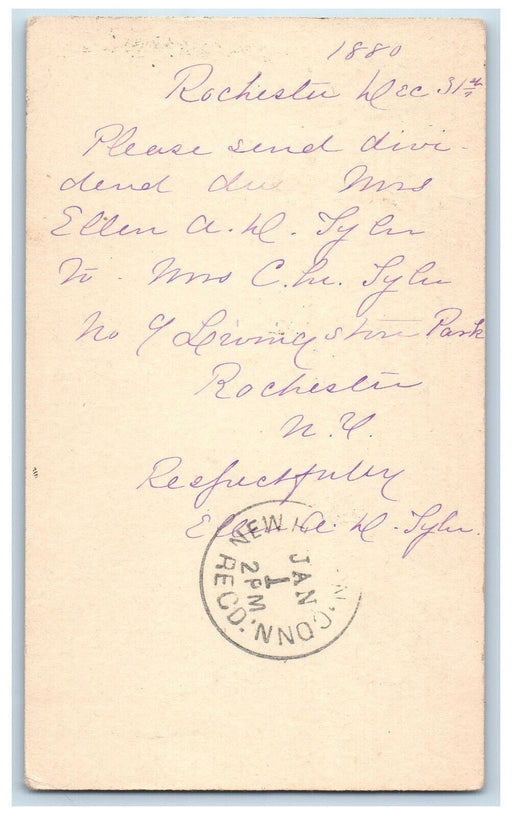 1880
Rochester Dec 31st
Please send divi-
dend due Mrs
Ellen A. D. Tyler
to Mrs C. M. Tyler
No 9 Livingston Park
Rochester
N.Y.
Respectfully
Ellen A. D. Tyler.
NEW H N. CONN.
JAN
1
2PM
REC'D.